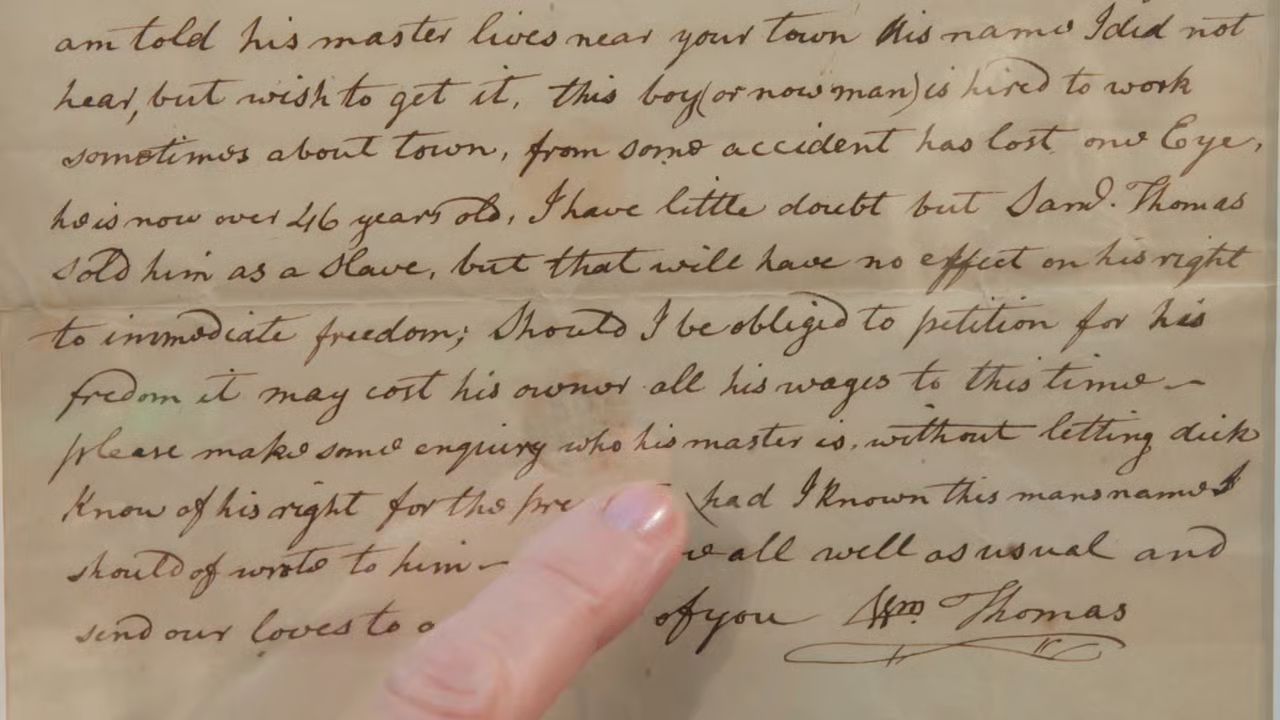 am told his master lives near your town his name I did not
hear, but wish to get it, this boy (or now man) is hired to work
sometimes about town, from some accident has lost one Eye,
he is now over 46 years old, I have little doubt but Saml. Thomas
sold him as a Slave, but that will have no effect on his right
to immediate freedom; Should I be obliged to petition for his
fredom it may cost his owner all his wages to this time —
please make some enquiry who his master is, without letting dick
Know of his right for the pre had I Known this mans name I
should of wrote to him — all well as usual and
send our loves to of you Wm Thomas